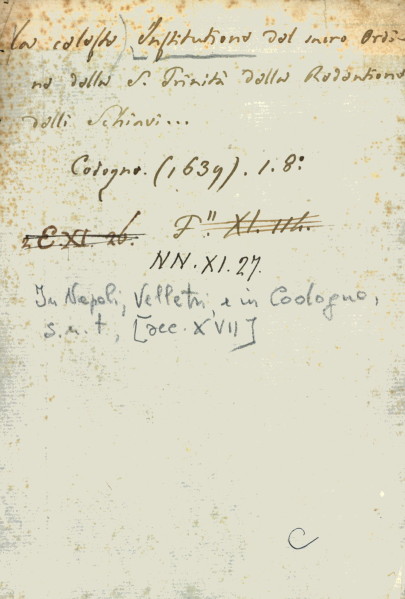 La celeste Institutione del sacro Ordi-
ne della S. Trinità della Redentione
delli Schiavi...
Codogno. (1639). 1. 8°
E.XI.26. F." XI. 114.
NN.XI.27.
In Napoli, Velletri, e in Codogno,
s.n.t, [sec. XVII]
C